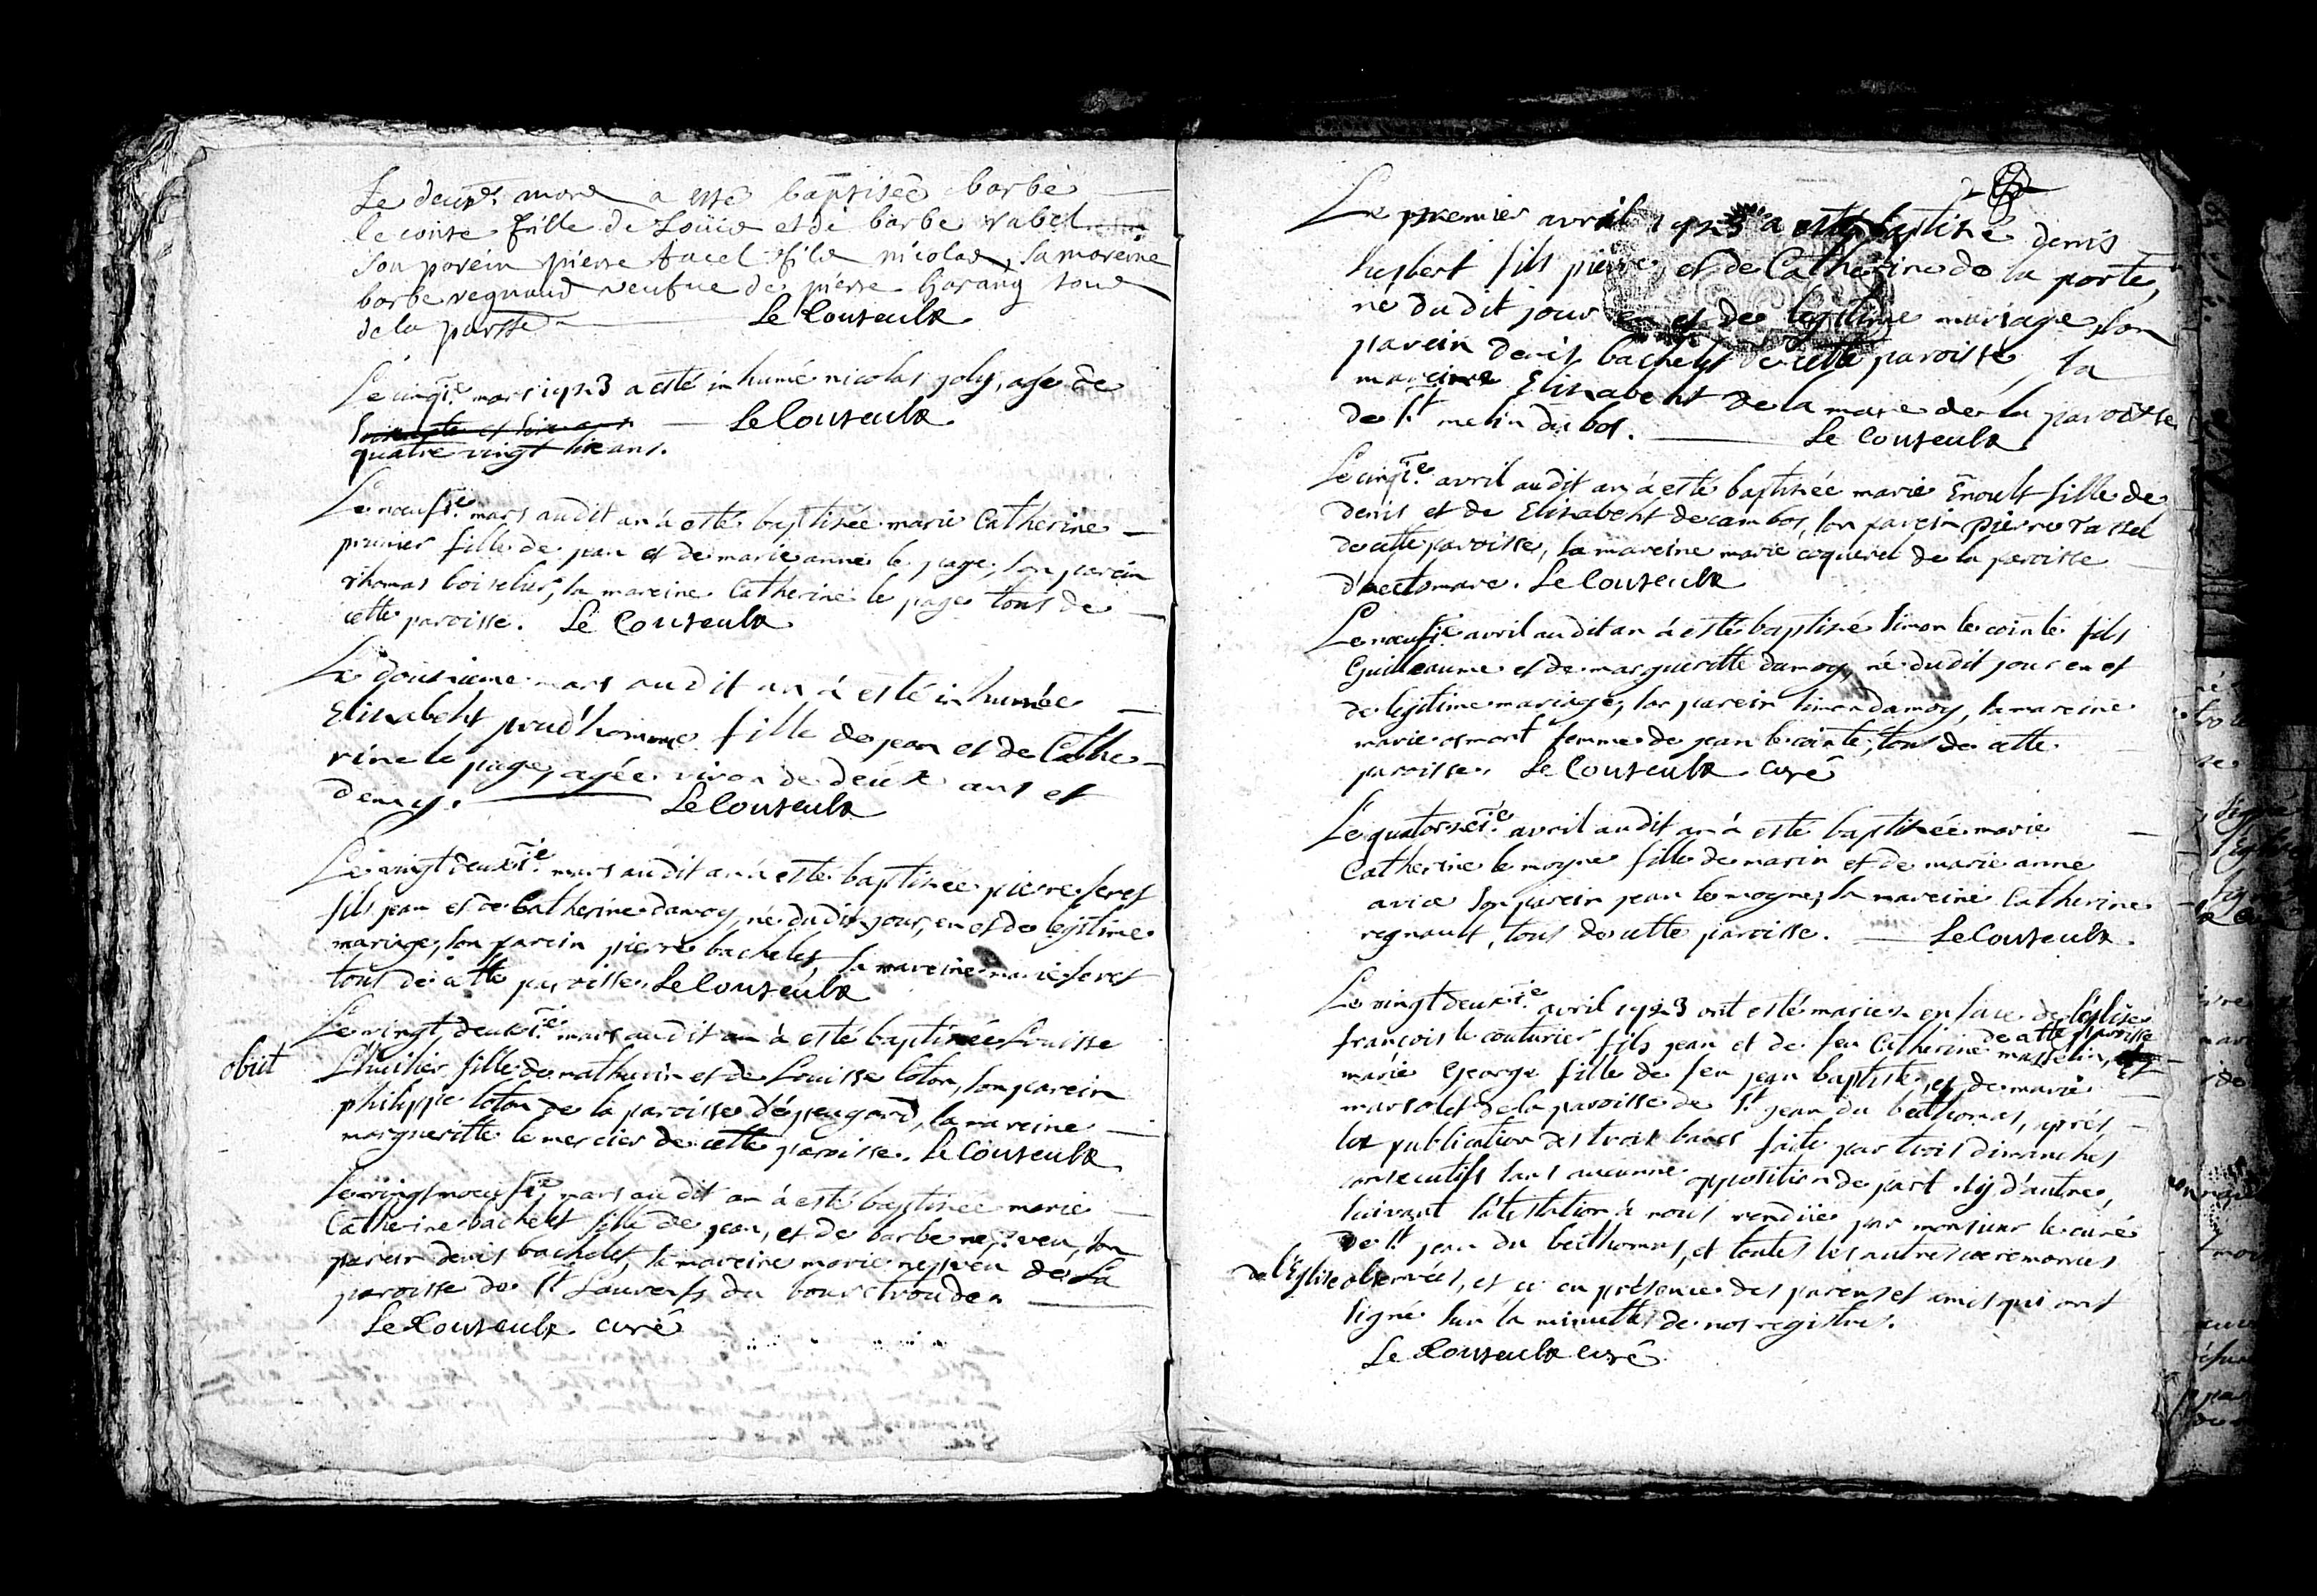 Le deuxe. mars a esté baptisée barbe
le conte fille de Loüis et de barbe vabel
son parein pierre fucel fils nicolas, sa mareine
barbe regnaud veufue de pierre harang tous
de la parsse Le Couteulx
Le cinqie. mars 1723 a esté inhumé nicolas joly, agé de
Le Couteulx
quatre vingt six ans.
Le neufie. mars audit an à esté baptisée marie Catherine
prunier fille de jean et de marie anne le page, son parein
thomas boiselier, sa mareine Catherine le page tous de
cette paroisse. Le Couteulx
Le dousieme mars audit an à esté inhumée
Elisabeht prud'homme fille de jean et de Cathe
rine le page, agée viron de deux ans et
demy. Le Couteulx
Le vingt deuxie. mars audit an à esté baptisée pierre feret
fils jean et de Catherine damoy, né dudit jour, en et de legitime
mariage, son parein pierre bachelet, sa mareine marie feret
tous de cette paroisse. Le Couteulx
Le vingt deuxie. mars audit an à esté baptisée Louisse
obiit L'huilier fille de mathurin et de Louisse loton, son parein
philippe loton de la paroisse d'épreugard, la mareine
margueritte le mercier de cette paroisse. Le Couteulx
Le vingt neufie mars au dit an à esté baptisée marie
Catherine bachelet fille de jean, et de barbe nepveu, son
parein denis bachelet, sa mareine marie nepveu de La
paroisse de St Laurent du bourctroude
Le Couteulx curé
2
Le premier avril 1723 a esté baptisé denis
hupbert fils pierre, et de Catherine de la porte,
né du dit jour en et de legitime mariage, son
parein denis bachelet de cette paroisse, sa
mareine Elisabeht de la mare de la paroisse
de St melin du bos. Le Couteulx
Le cinqie. avril audit an à esté baptisée marie Enoult fille de
denis et de Elisabeht decambos, son parein pierre tassel
de cette paroisse, sa mareine marie coquerel de la paroisse
d'hectomare. Le Couteulx
Le neufie avril audit an à esté baptisé simon le cointe fils
Guilleaume et de margueritte damoy, né dudit jour en et
de legitime mariage, son parein simon damoy, sa mareine
marie osmont femme de jean le cointe, tous de cette
paroisse. Le Couteulx curé
Le quatorsie. avril audit an à esté baptisée marie
Catherine le moyne fille de marin et de marie anne
avice son parein jean le moyne, sa mareine Catherine
regnault, tous de cette paroisse. Le Couteulx
Le vingt deuxie. avril 1723 ont esté mariez en face de l'église
de cette paroisse
françois le couturier fils jean et de feu Catherine masselin, et
marie George fille de feu jean baptiste, et de marie
marsolet de la paroisse de St jean du becthomas, aprés
les publication des trois bancs faite par trois dimanches
consecutifs sans aucunne opposition de part ny d'autre,
suivant l'atestation à nous rendüe par monsieur le curé
de St jean du becthomas, et toutes les autres ceremonies
de l'Eglise observées, et ce en présence des parens et amis qui ont
signé sur la minutte de nos registres.
Le Couteulx curé